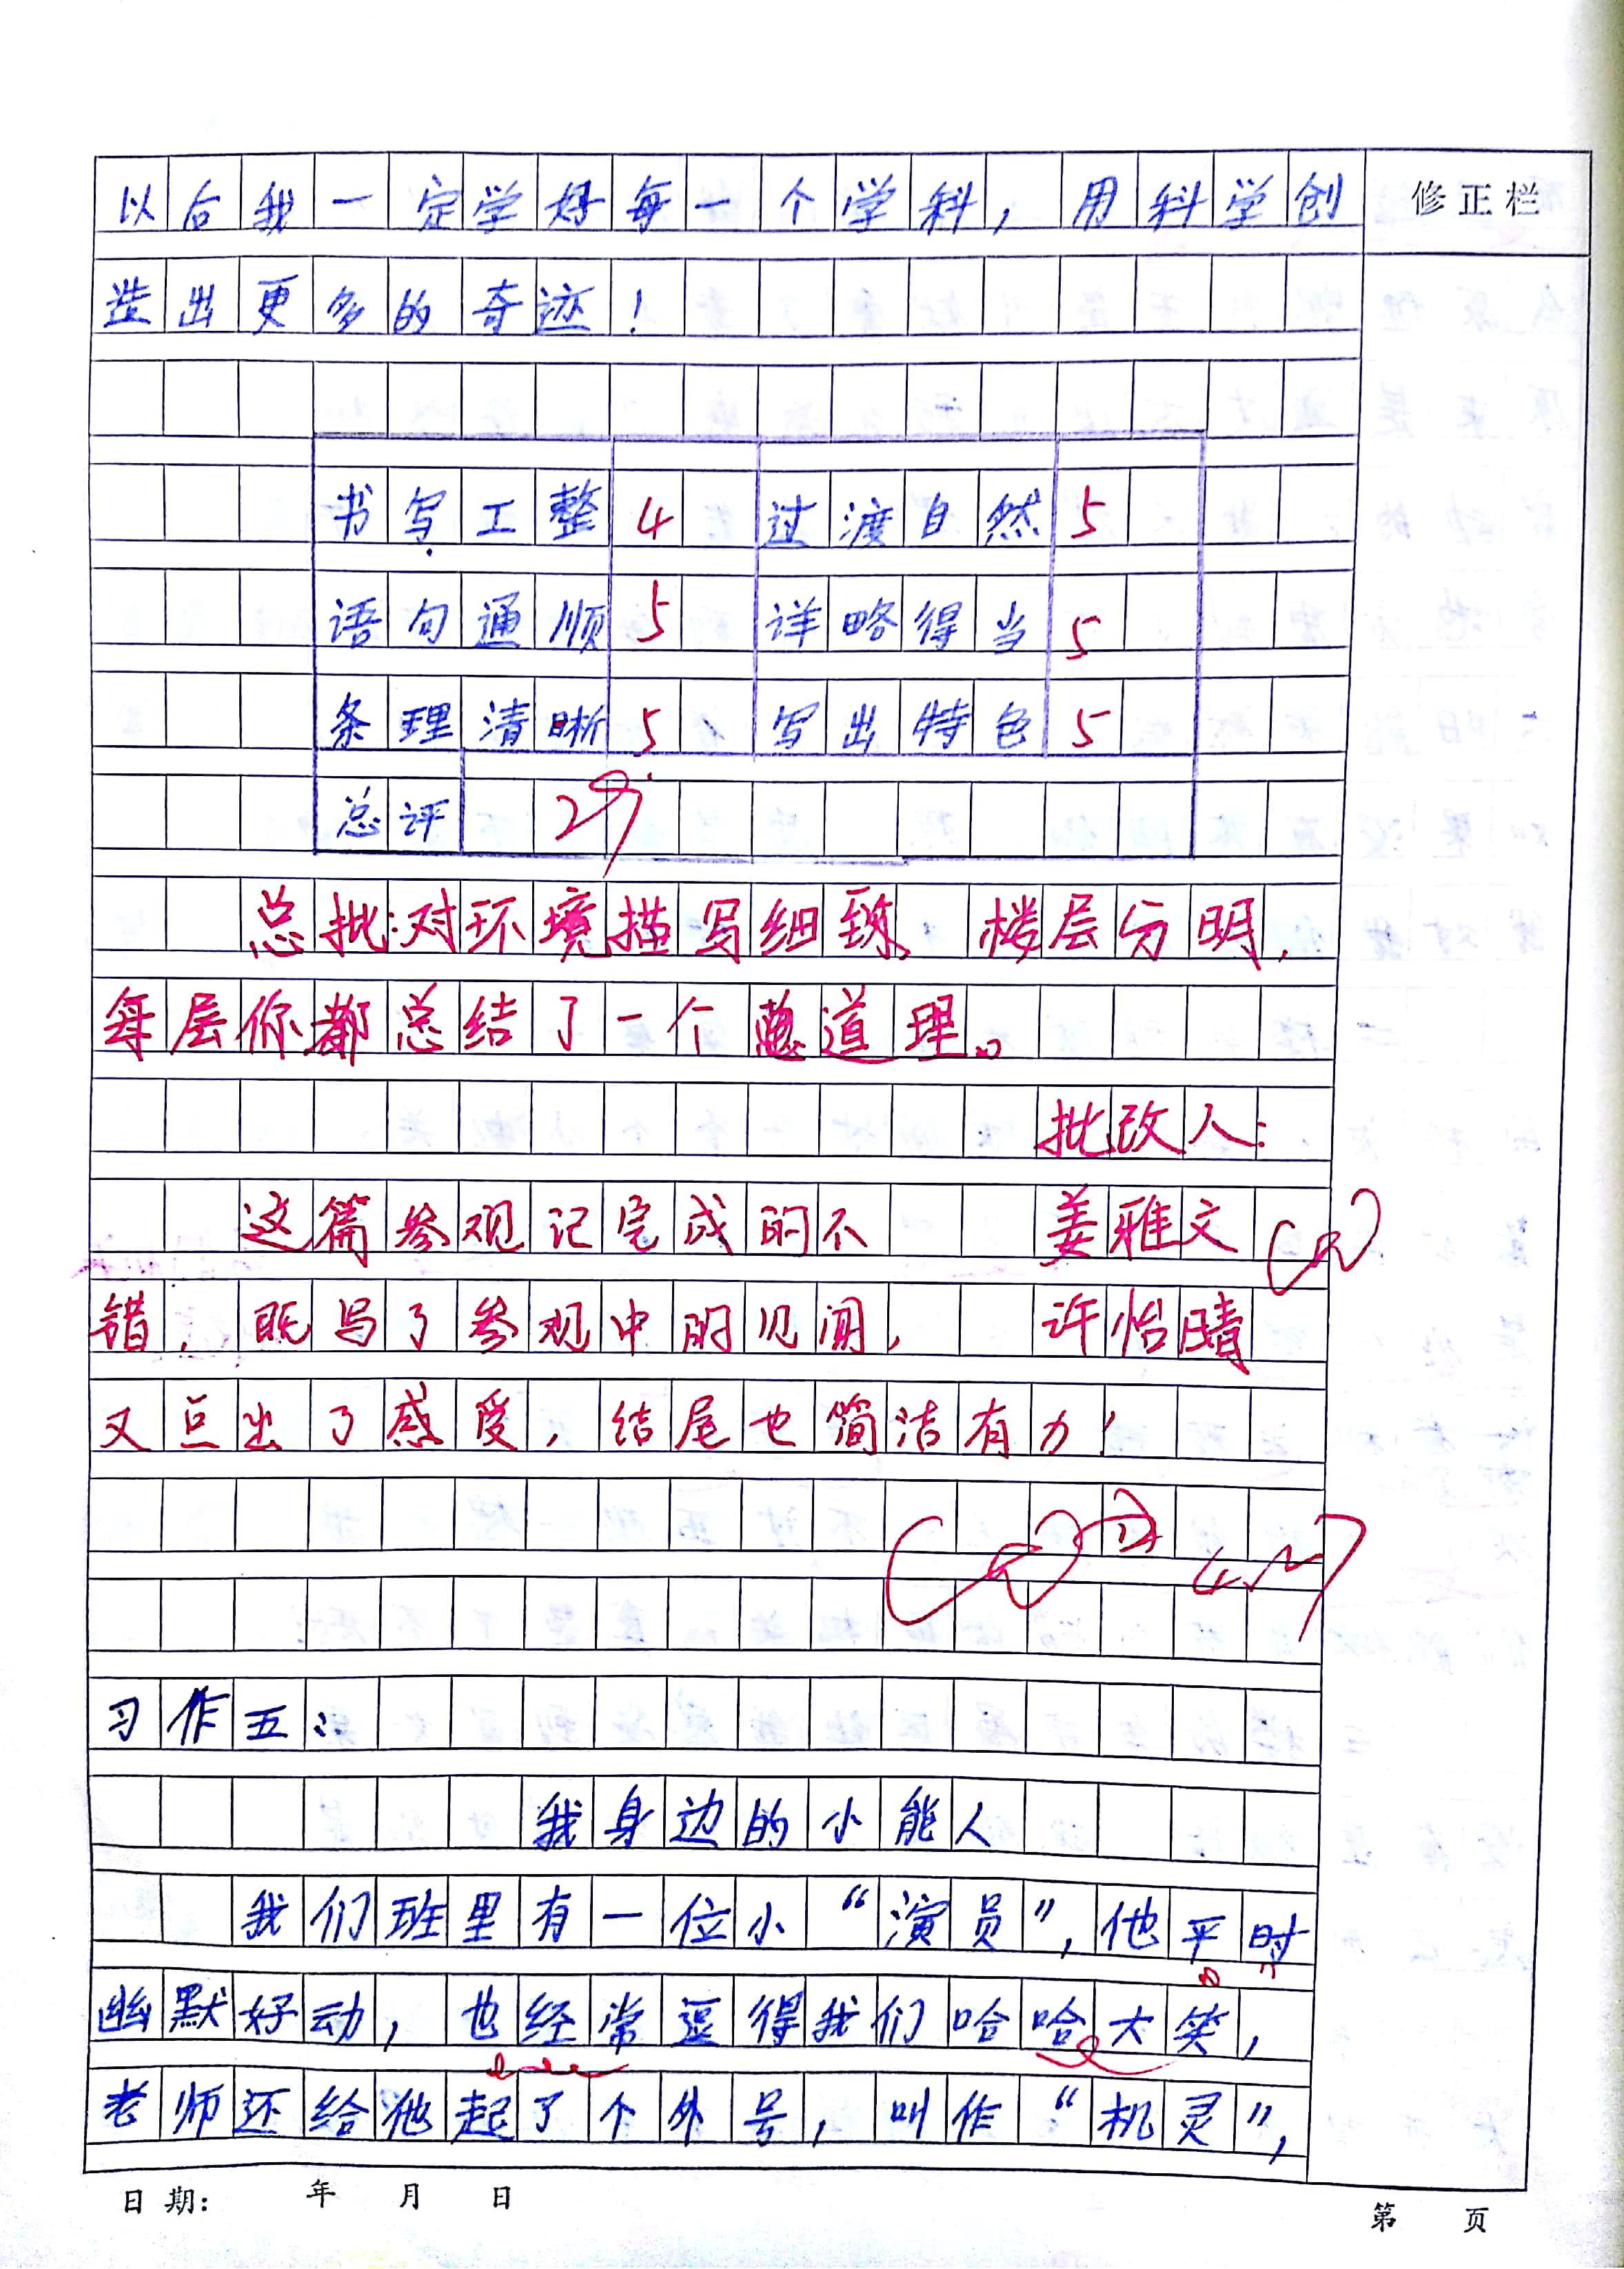 以后我一定学好每一个学科，用科学创
修正栏
造出更多的奇迹！
书写工整 4 过渡自然 5
语句通顺 5 详略得当 5
条理清晰 5 写出特色 5
总评 29
总批：对环境描写细致，楼层分明，
每层你都总结了一个道理。
批改人：
这篇参观记完成的不 姜雅文
错，既写了参观中的见闻， 许怡晴
又写出了感受，结尾也简洁有力！
习作五：
我身边的小能人
我们班里有一位小“演员”，他平时
幽默好动，也经常逗得我们哈哈大笑，
老师还给他起了个外号，叫作“机灵”，
日期： 年 月 日
第 页